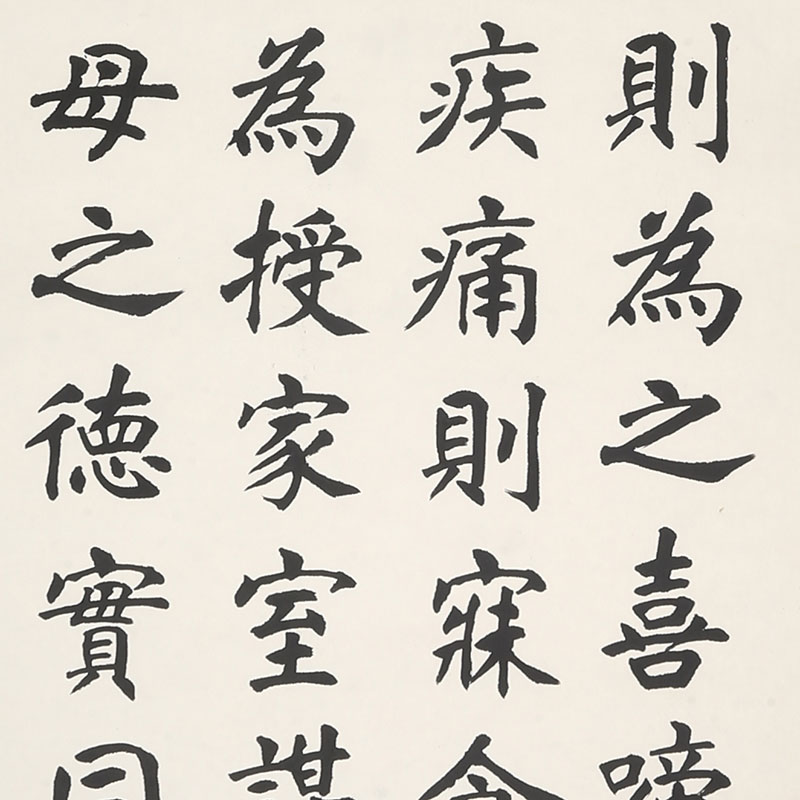 則為之喜啼
疾痛則寐食
為授家室謀
母之德實同